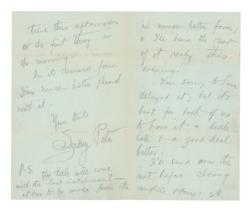 time this afternoon
or the first thing in
the morning.
In its revised form
I'm much better pleased
with it.
Yours truly
Sydney Porter
P.S. The title will come
with the last instalment—
it has to be made from the
in much better form,
& I'll have the rest
of it ready this
evening.
I'm sorry to have
delayed it, but it's
best for both of us
to have it a little
late & a good deal
better.
I'll send over the
rest before closing